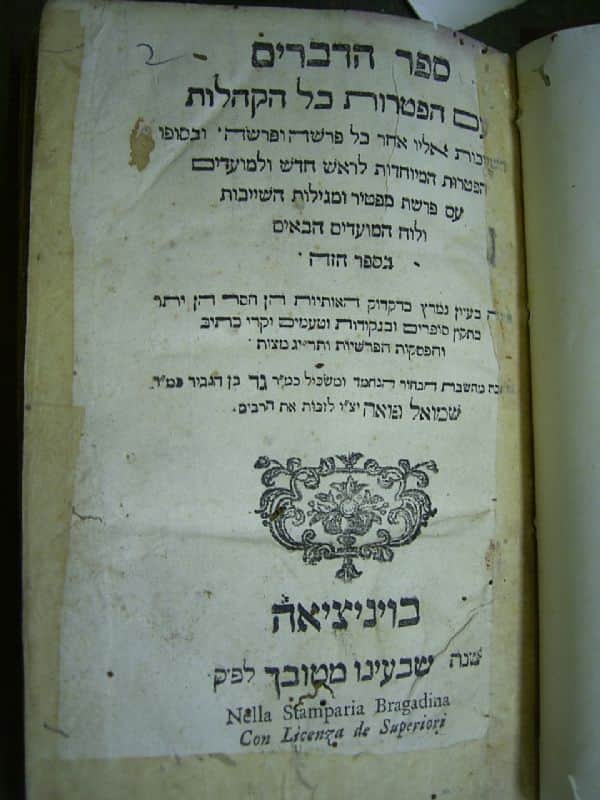 ספר הדברים
עם הפטרות כל הקהלות
השייכות אליו אחר כל פרשה ופרשה׳ ובסופו
הפטרות המיוחדות לראש חדש ולמועדים
עם פרשת מפטיר ומגילות השייכות
ולוח המועדים הבאים
בספר הזה׳
בעיון נמרץ בדקדוק האותיות הן חסר הן יתר
כתקון סופרים ובנקודות וטעמים וקרי כתיב
והפסקות הפרשיות ותרי״ג מצות׳
מהשבת הבחור הנחמד ומשכיל כמ״ר גד בן הגביר כמ״ר
שמואל פואה יצ״ו לזכות את הרבים׃
בויניציאה
שנה שבעינו מטובך לפ״ק
Nella Stamparia Bragadina
Con Licenza de Superiori